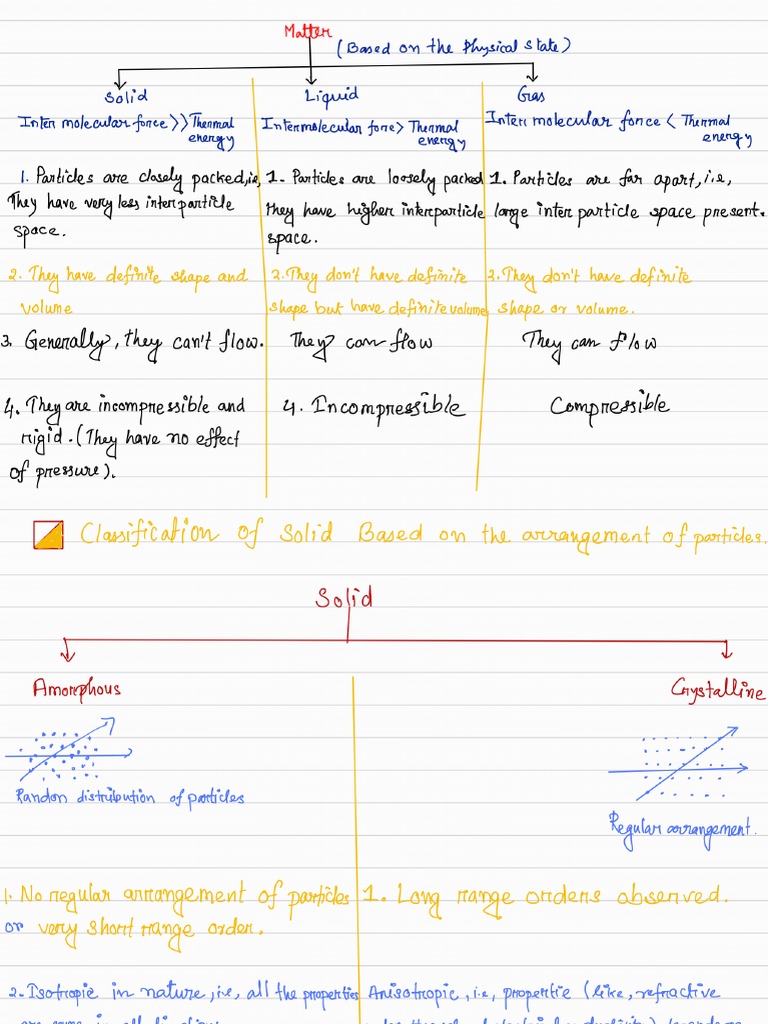 Matter
(Based on the Physical state)
Solid
Liquid
Gas
Inter molecular force >> Thermal
energy
Intermolecular fore > Thermal
energy
Inter molecular force < Thermal
energy
1. Particles are closely packed, i.e,
They have very less interparticle
space.
1. Particles are loosely packed
they have higher interparticle
space.
1. Particles are far apart, i.e.,
large inter particle space present.
2. They have definite shape and
volume
2. They don't have definite
shape but have definite volume
2. They don't have definite
shape or volume.
3. Generally, they can't flow.
They can flow
They can flow
4. They are incompressible and
rigid. (They have no effect
of pressure).
4. Incompressible
Compressible
Classification of Solid Based on the arrangement of particles.
Solid
Amorphous
Crystalline
Randon distribution of particles
Regular arrangement.
1. No regular arrangement of particles
or very short range order.
1. Long range orders observed.
2. Isotropic in nature, i.e, all the properties
Anisotropic, i.e, propertie (like, refractive